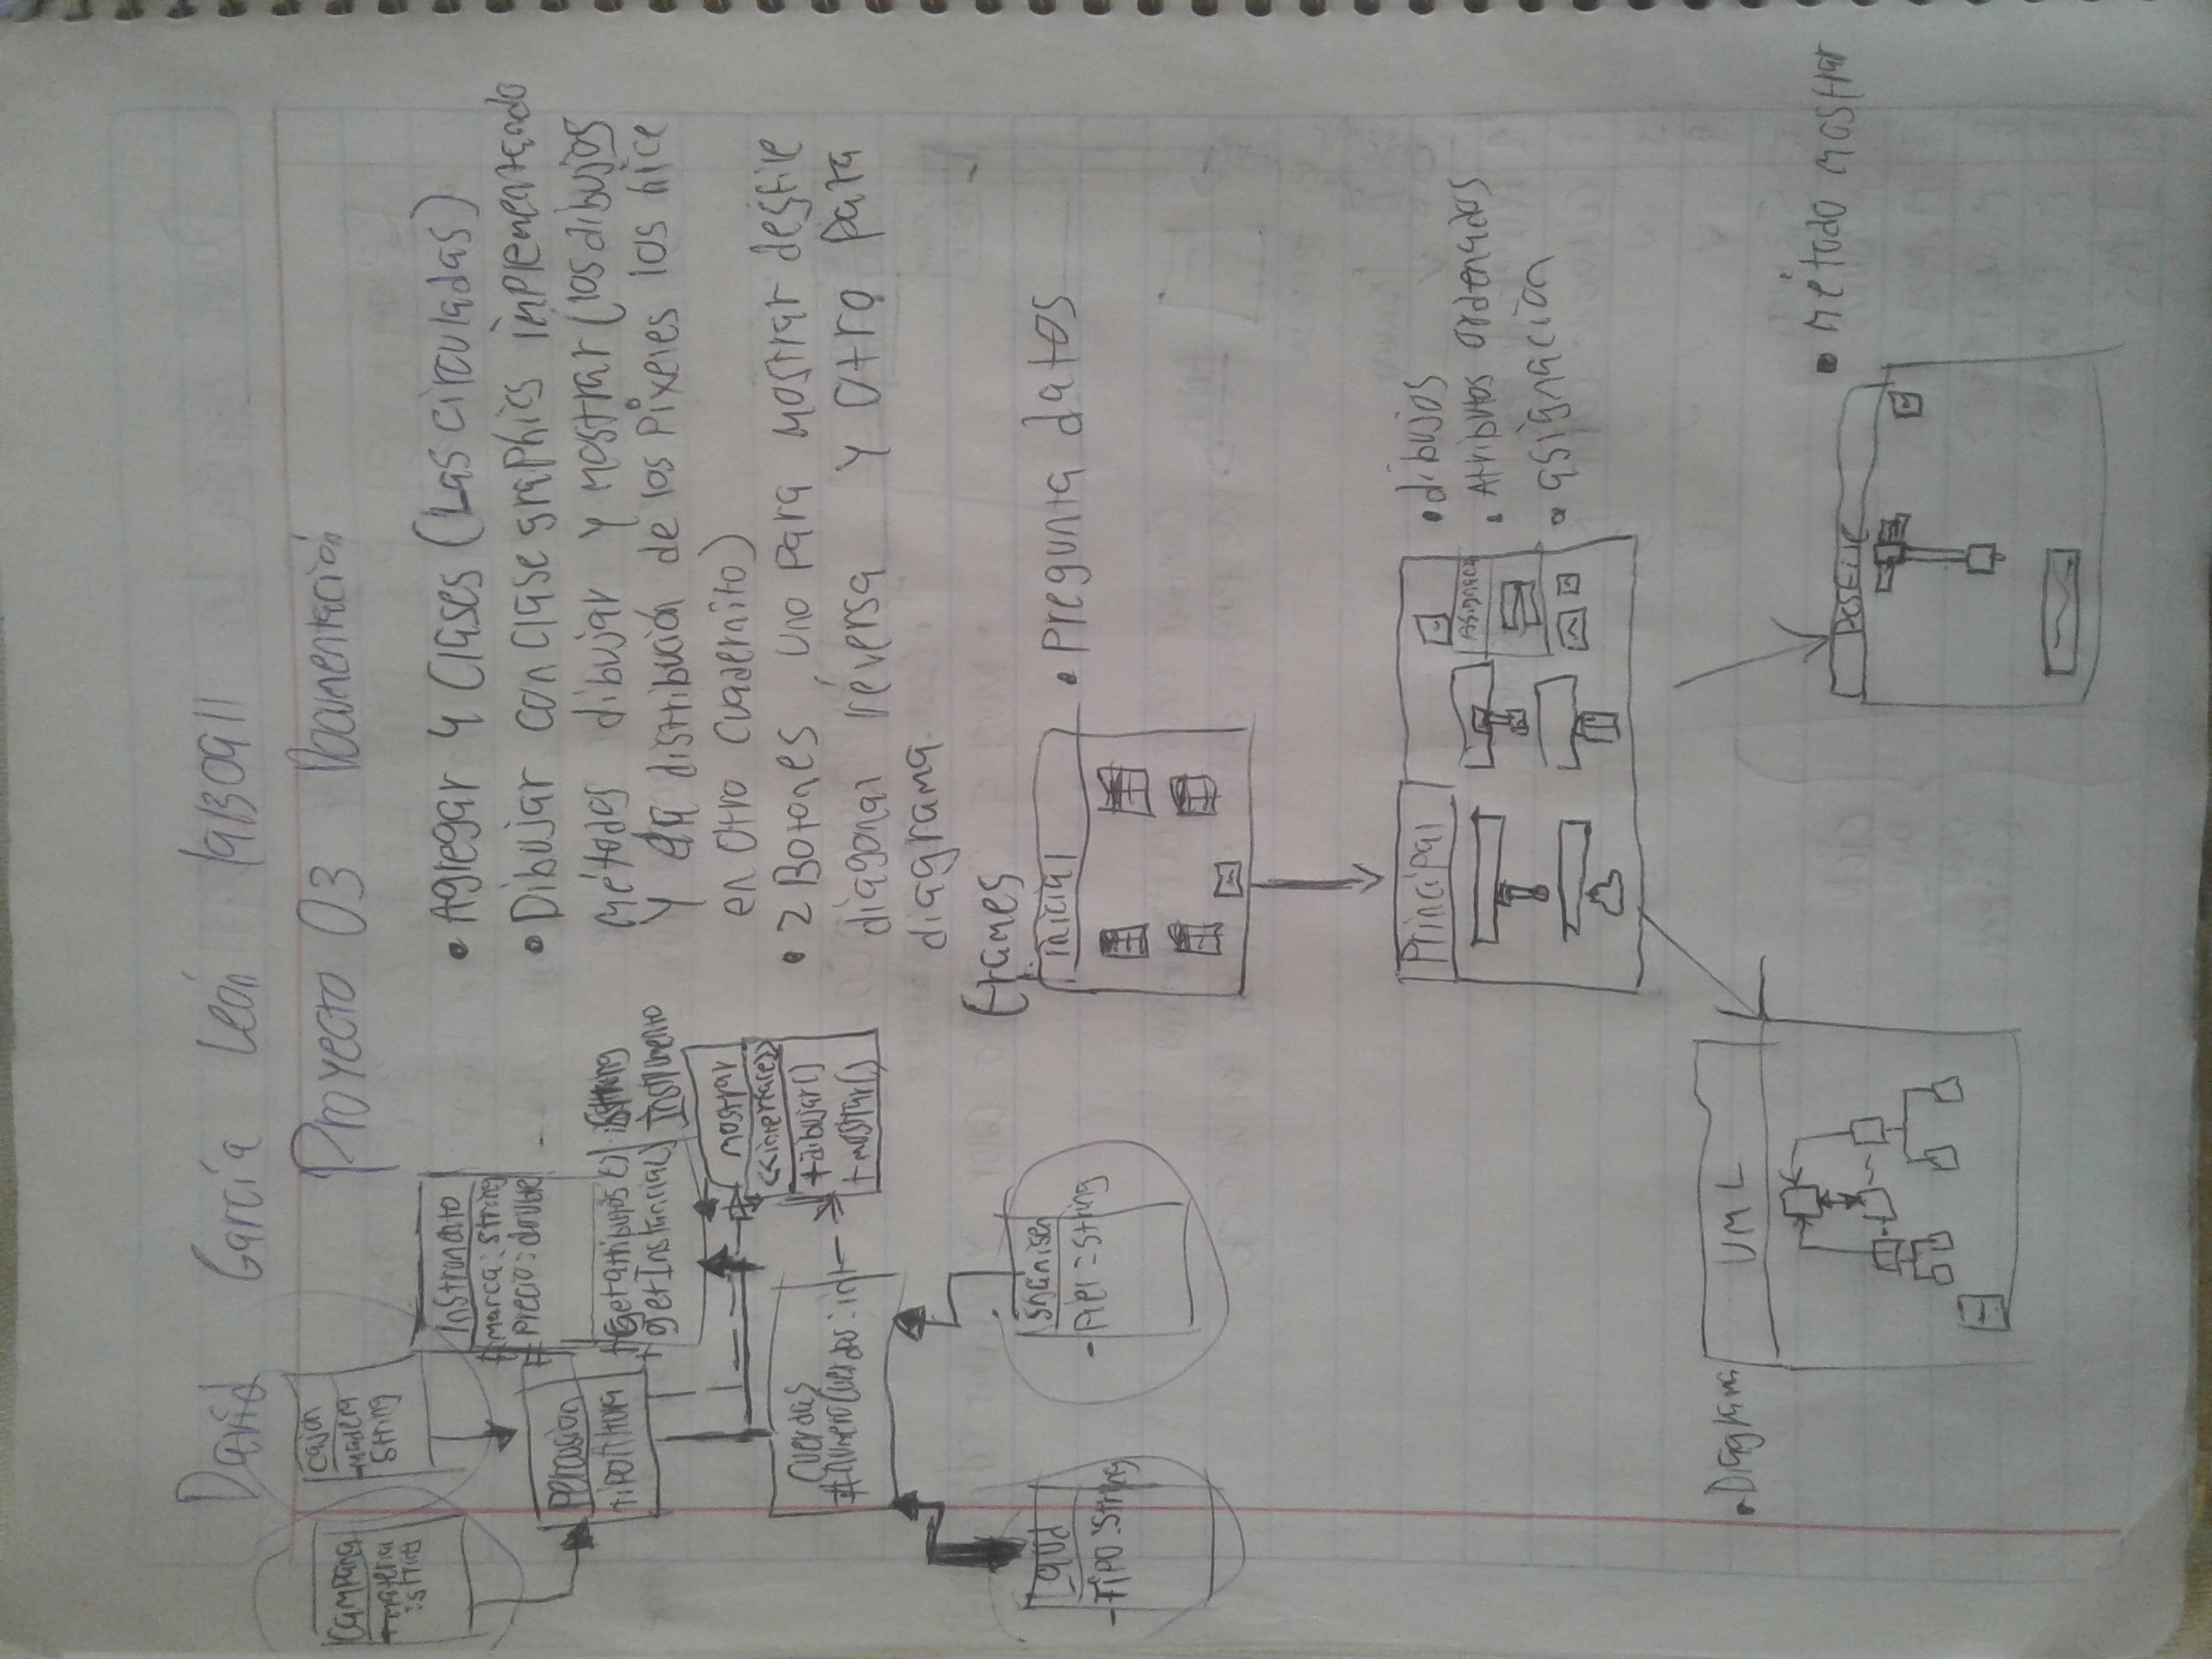 David García León 19130911
Proyecto 03 Documentación
Campana
-material
:string
Cajon
-madera
String
Instrumento
#marca: string
# Precio: double
+getatributos()
+getInstancia()
Instrumento
Percusion
mostrar
<<interface>>
+dibujar()
+mostrar()
Cuerdas
#numeroCuerdas: int
Laud
-Tipo: String
-Piel = String
• Agregar 4 Clases (Las circuladas)
• Dibujar con clase graphics inplementando
métodos dibujar y mostrar (los dibujos
y la distribución de los Pixeles los hice
en Otro Cuadernito)
• 2 Botones, uno para mostrar desfile
diagonal réversa y Otro para
diagrama
Frames
inicial
• Pregunta datos
Principal
Asignaci
• dibujos
• Atributos ordenados
• asignación
• Diagrama
UML
Desfile
• método mostrar